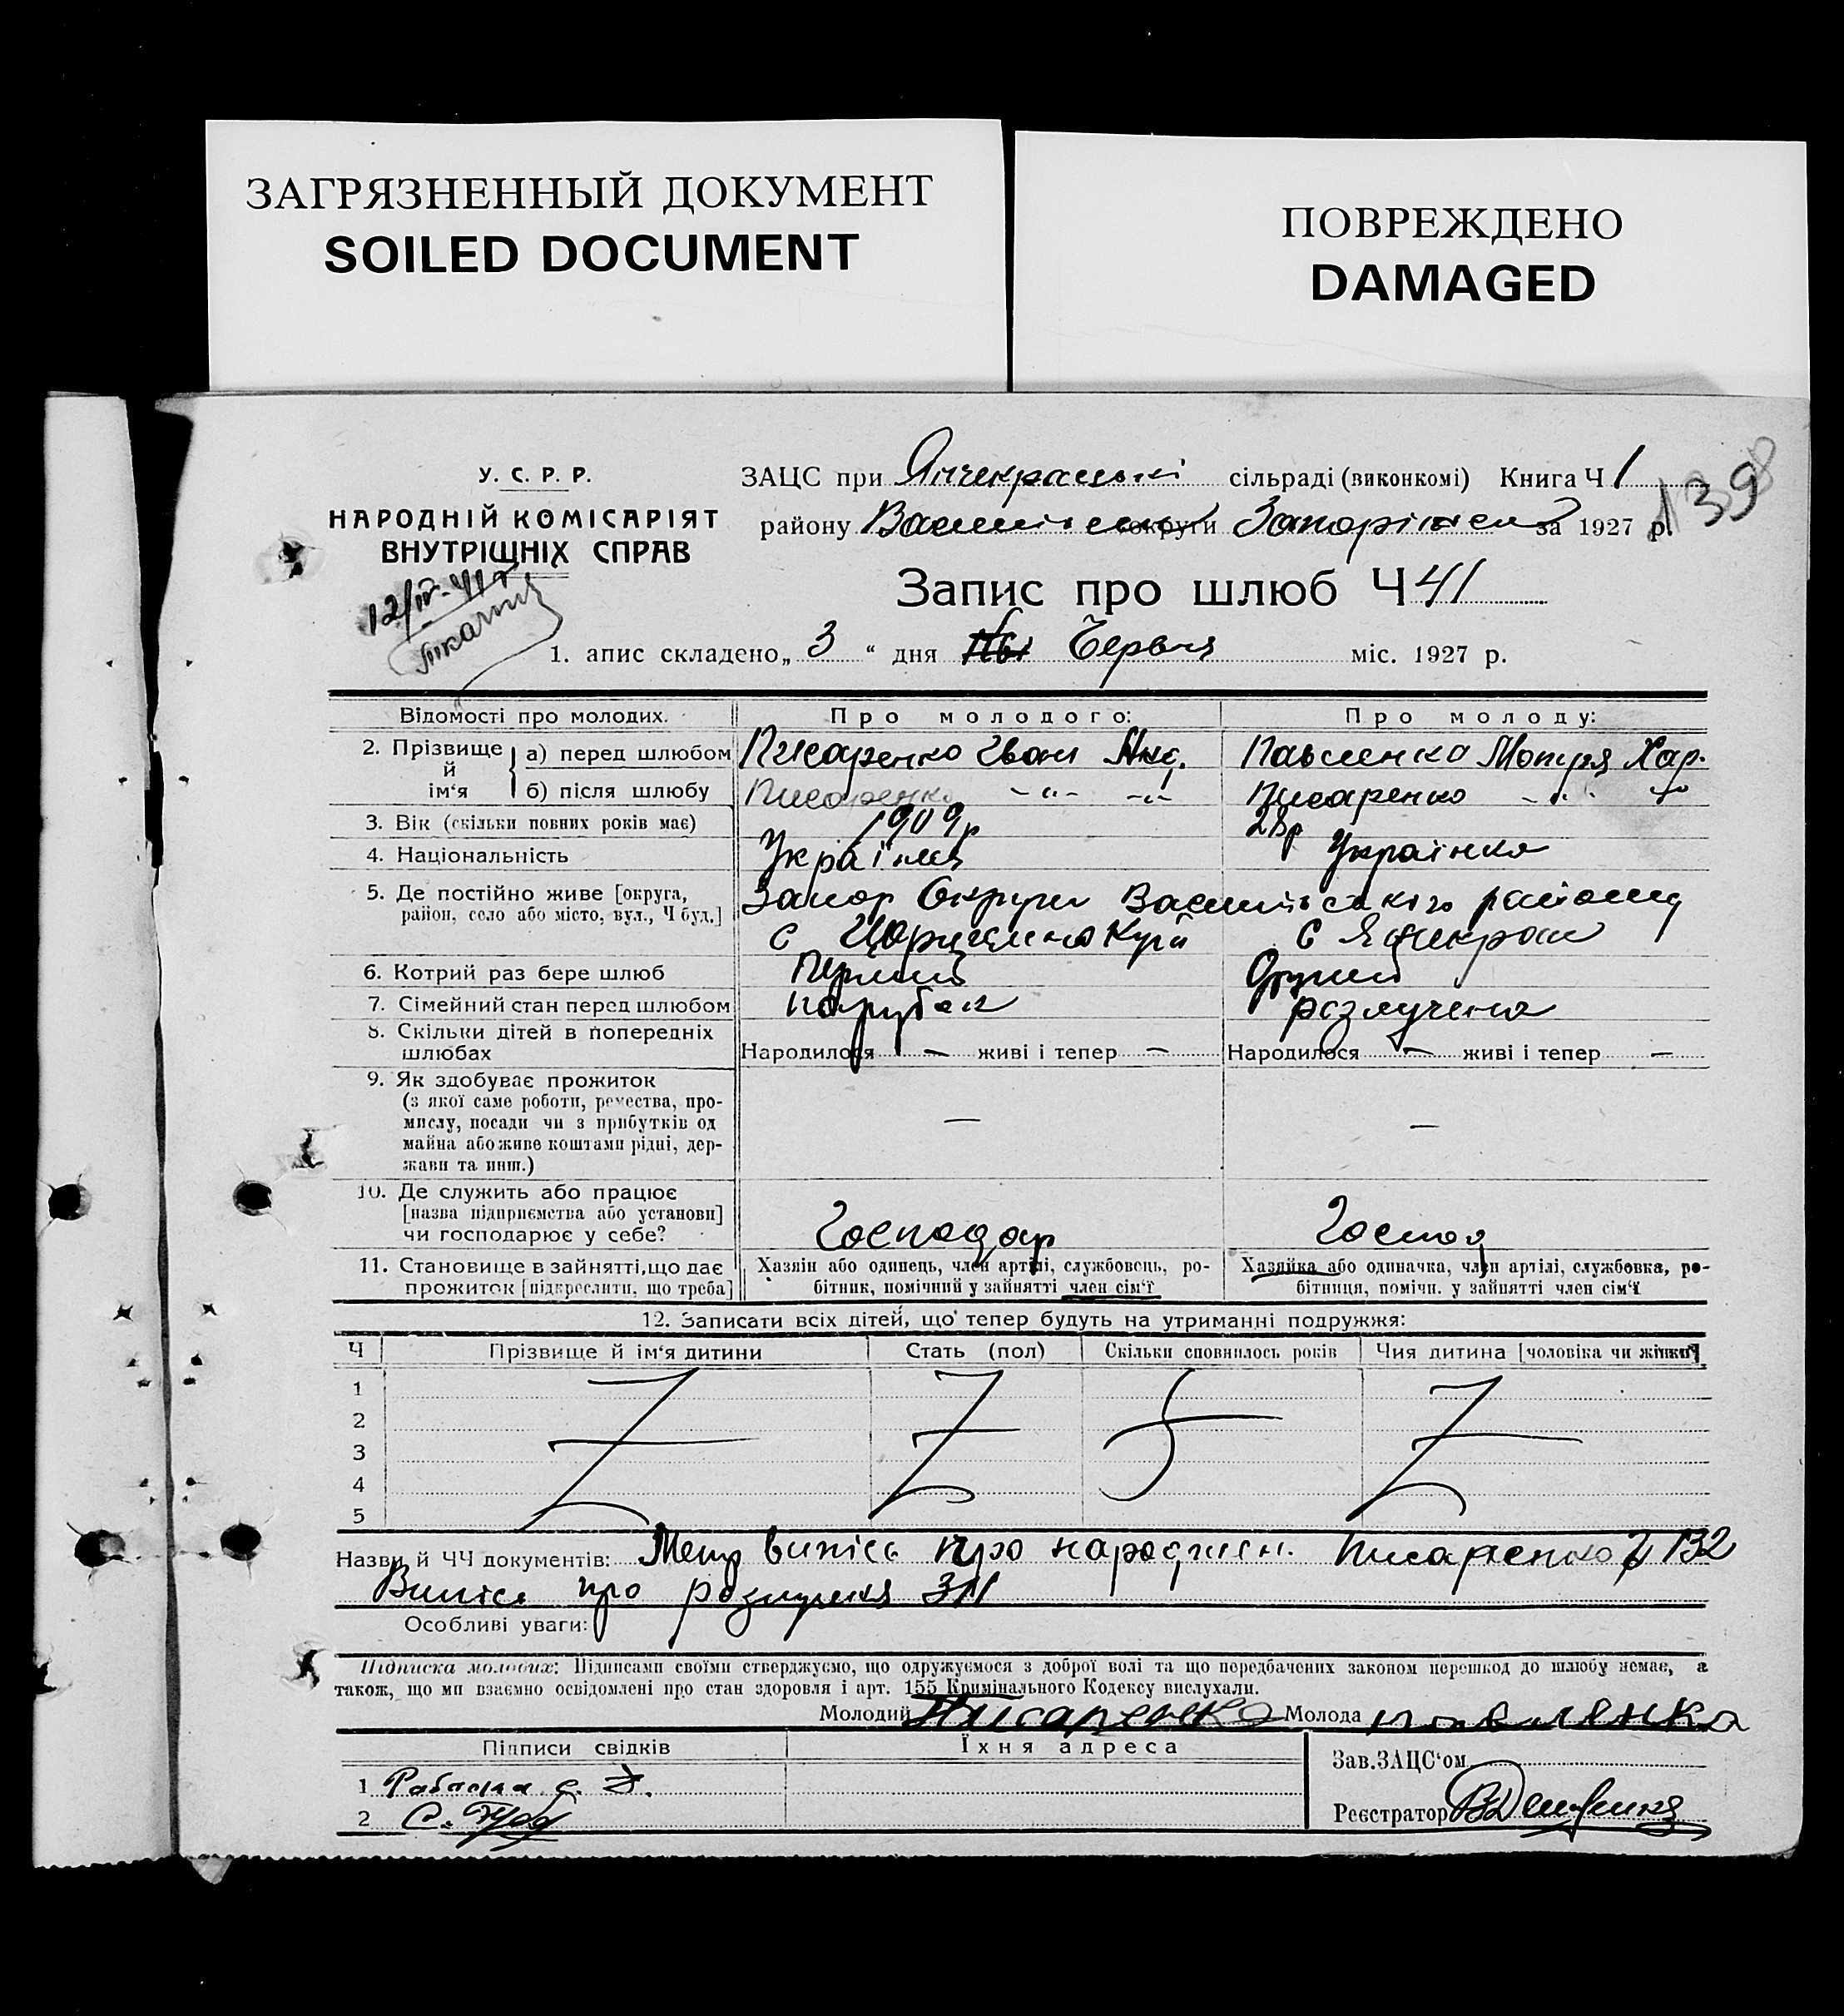 ЗАГРЯЗНЕННЫЙ ДОКУМЕНТ
SOILED DOCUMENT
ПОВРЕЖДЕНО
DAMAGED
У. С. Р. Р.
НАРОДНІЙ КОМІСАРІЯТ
ВНУТРІШНІХ СПРАВ
ЗАЦС при Янчекракські сільраді (виконкомі) Книга Ч 1
139
району округи за 1927 р.
12/IV-41 г
Запис про шлюб Ч 41
1. апис складено „ 3 “ дня Червня міс. 1927 р.
Відомості про молодих. Про молодого: Про молоду:
2. Прізвище й ім‘я
а) перед шлюбом Писаренко Іван Павленко Мотря Хар.
б) після шлюбу Писаренко -"- -"- Писаренко -"- -"-
3. Вік (скільки повних років має) 1909р 28р
4. Національність Українец Українка
5. Де постійно живе [округа,
район, село або місто, вул., Ч буд.]
Запор Округи Василівського району
с Царицино Кут с Янчекрак
6. Котрий раз бере шлюб Перший Другий
7. Сімейний стан перед шлюбом парубок розлучена
8. Скільки дітей в попередніх
шлюбах Народилося — живі і тепер — Народилося — живі і тепер —
9. Як здобуває прожиток
(з якої саме роботи, ремества, про-
мислу, посади чи з прибутків од
майна або живе коштами рідні, дер-
жави та инш.) — —
10. Де служить або працює
[назва підприємства або установи]
чи господарює у себе? Господар Господ
11. Становище в зайнятті, що дає
прожиток [підкреслити, що треба]
Хазяїн або одинець, член артілі, службовець, ро-
бітник, помічний у зайнятті член сім‘ї
Хазяйка або одиначка, член артілі, службовка, ро-
бітниця, помічн. у зайнятті член сім‘ї
12. Записати всіх дітей, що тепер будуть на утриманні подружжя:
Ч Прізвище й ім‘я дитини Стать (пол) Скільки сповнилось років Чия дитина [чоловіка чи жінки]
1
2
3
4
5
Назви й ЧЧ документів: випісь про народжен. Писаренко 132
Випісь про розлучення 311
Особливі уваги:
Підписка молодих: Підписами своїми стверджуємо, що одружуємося з доброї волі та що передбачених законом перешкод до шлюбу немає, а
також, що ми взаємно освідомлені про стан здоровля і арт. 155 Кримінального Кодексу вислухали.
Молодий Писаренко Молода Павленко
Підписи свідків Їхня адреса
Зав. ЗАЦС‘ом
1
2
Реєстратор